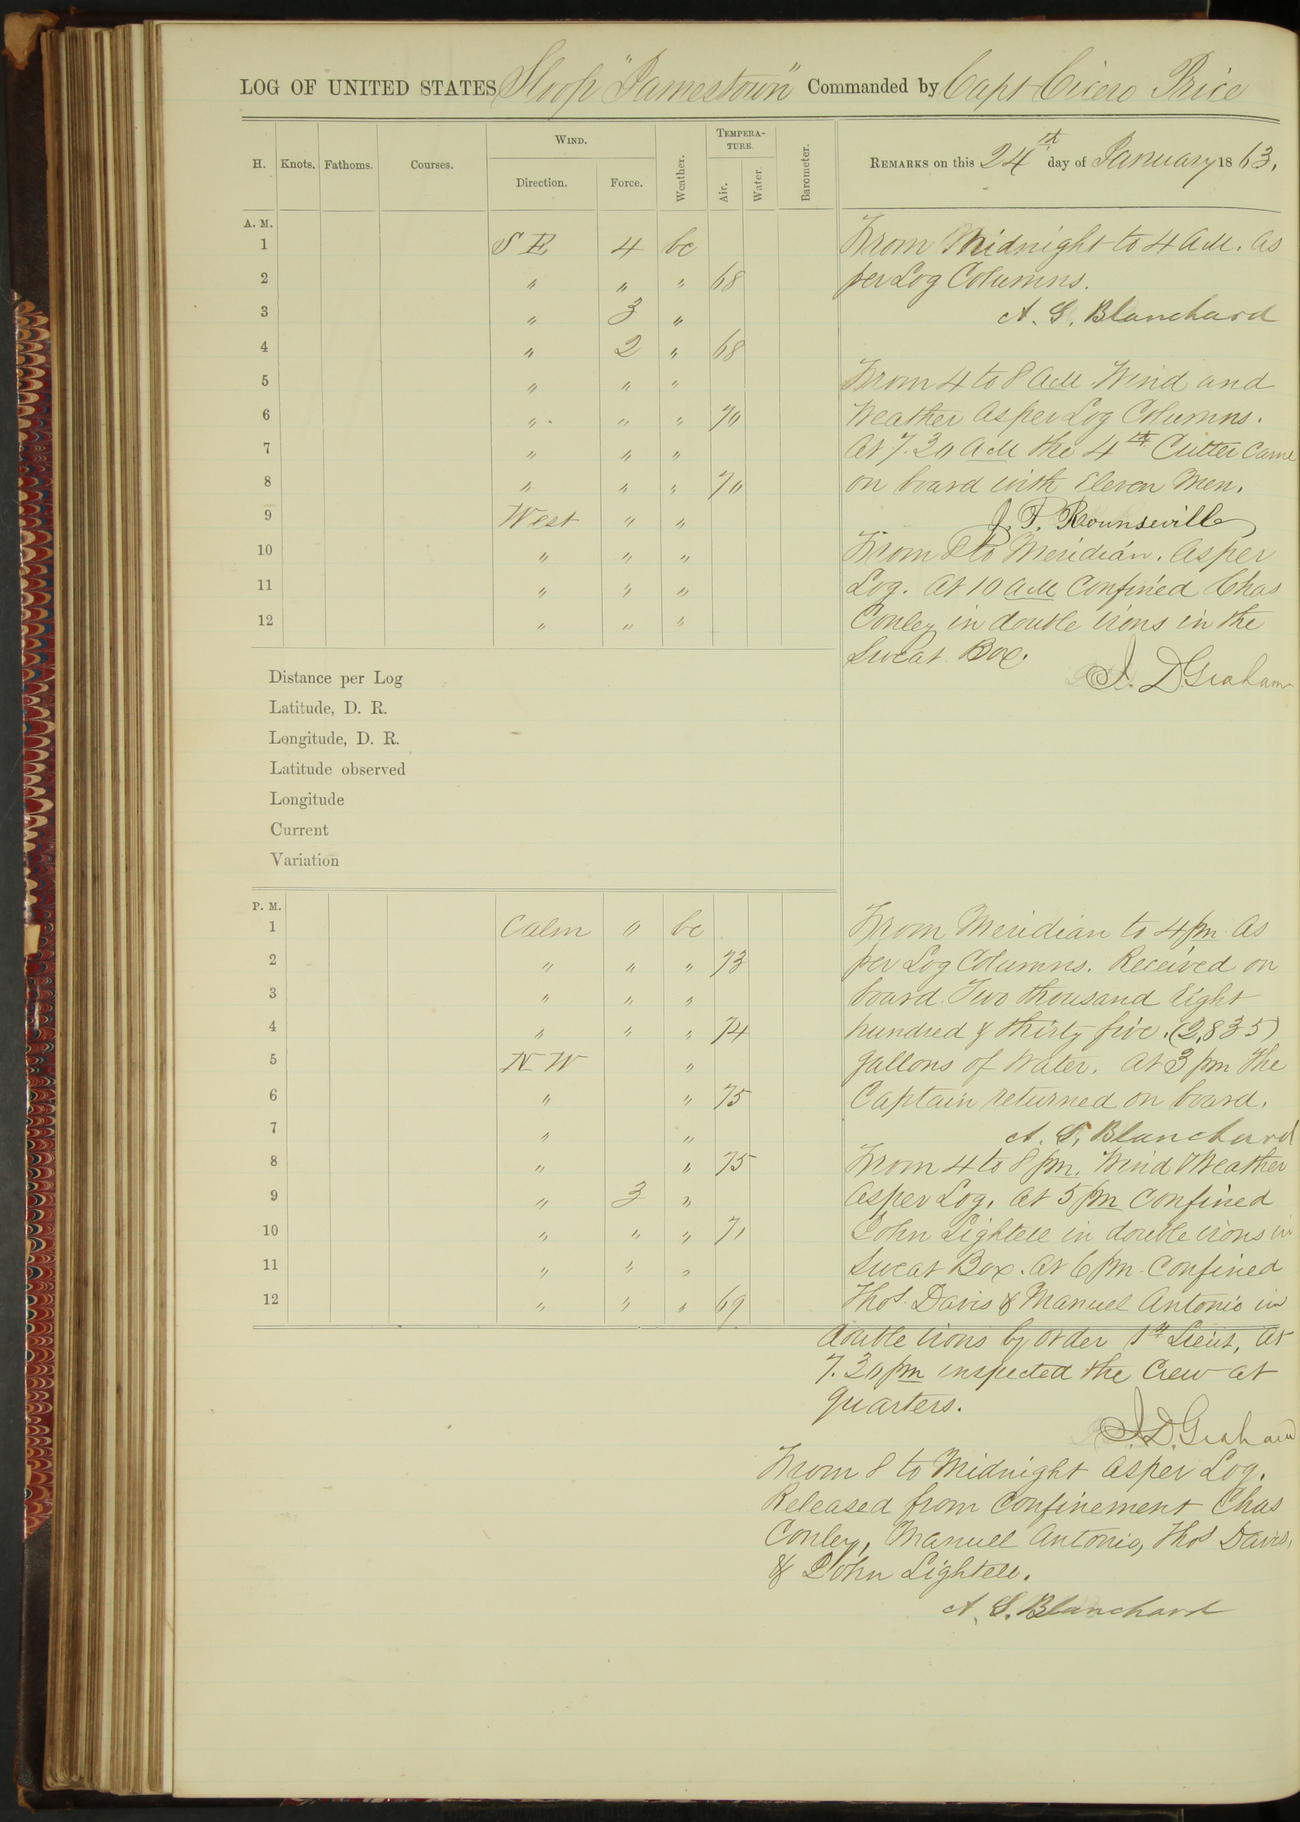 LOG OF UNITED STATES Sloop "Jamestown" Commanded by Capt Cicero Price
H. Knots. Fathoms. Courses. WIND. Direction. Force. Weather. TEMPERATURE. Air. Water. Barometer. REMARKS on this 24th day of January 1863.
A. M.
1 S E 4 bc
2 " " " 68
3 " 3 "
4 " 2 " 68
5 " " "
6 " " " 70
7 " " "
8 " " " 70
9 West " "
10 " " "
11 " " "
12 " " "
From Midnight to 4 AM. As
per Log Columns.
A. S. Blanchard
From 4 to 8 AM Wind and
Weather As per Log Columns.
At 7.30 AM the 4th Cutter Came
on board with Eleven Men.
J. F. Rounseville
From 8 to Meridian. As per
Log. At 10 AM Confined Chas
Conley in double irons in the
Sweat Box.
J. D. Graham
Distance per Log
Latitude, D. R.
Longitude, D. R.
Latitude observed
Longitude
Current
Variation
P. M.
1 Calm 0 bc
2 " " " 73
3 " " "
4 " " " 74
5 N W "
6 " " 75
7 " "
8 " " 75
9 " 3 "
10 " " " 71
11 " " "
12 " " " 69
From Meridian to 4 pm As
per Log Columns. Received on
board Two thousand Eight
hundred & thirty five. (2,835)
gallons of Water. At 3 pm The
Captain returned on board.
A. S. Blanchard
From 4 to 8 pm. Wind & Weather
As per Log. At 5 pm Confined
John Lightell in double irons in
Sweat Box. At 6 pm Confined
Thos Davis & Manuel Antonio in
double irons by order 1st Lieut, At
7.30 pm inspected the Crew at
quarters.
J. D. Graham
From 8 to Midnight As per Log.
Released from Confinement Chas
Conley, Manuel Antonio, Thos Davis,
& John Lightell.
A. S. Blanchard